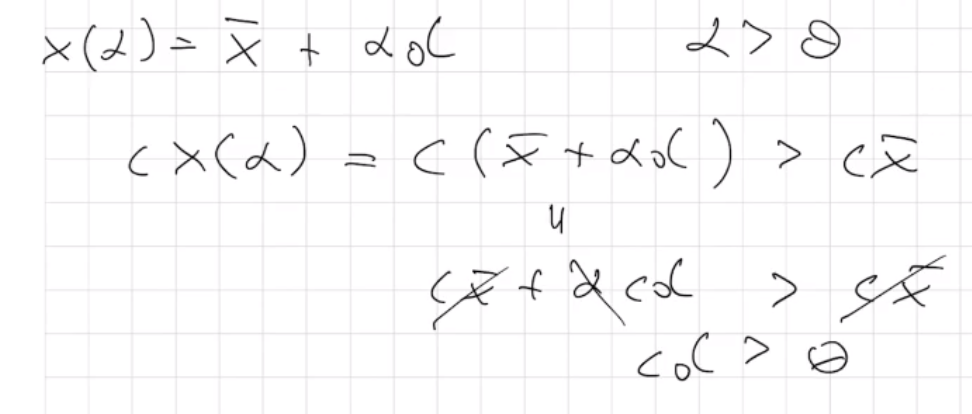 x(α) = x̄ + αd α > 0
cx(α) = c(x̄ + αd) > cx̄
"
cx̄ + αcd > cx̄
cd > 0